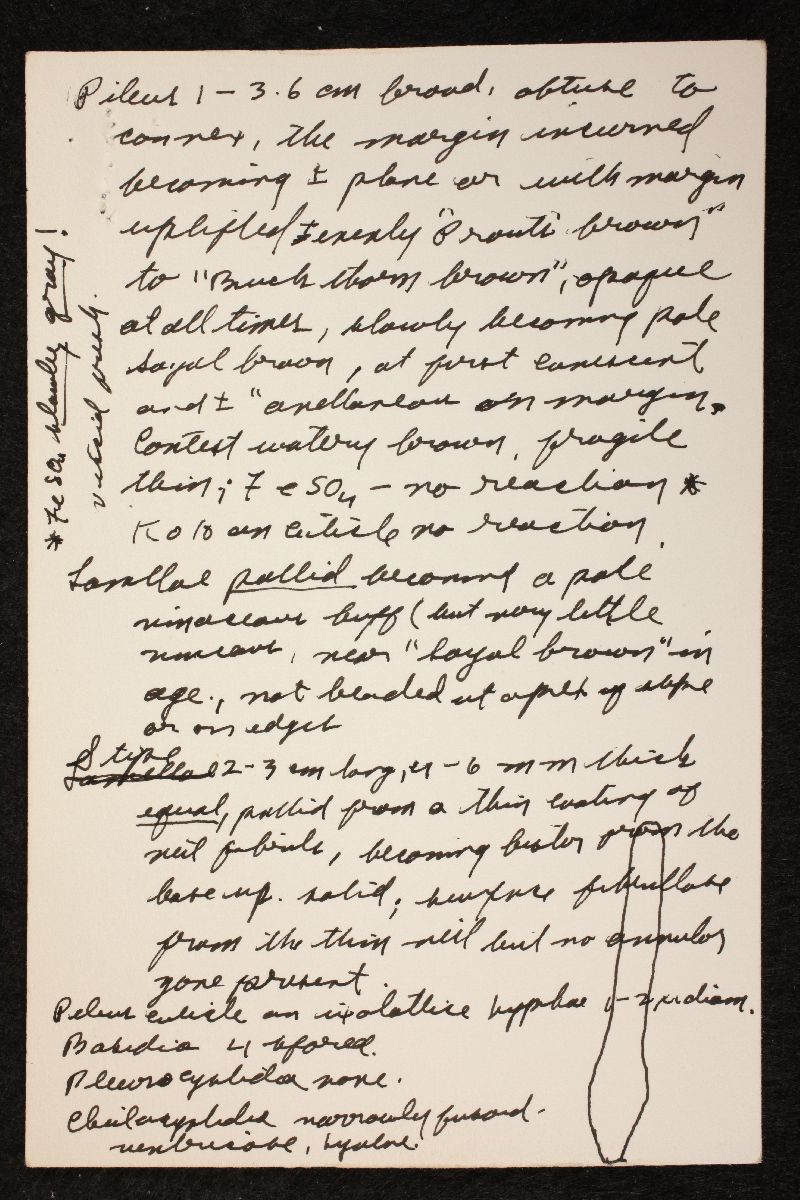 Pileus 1 - 3.6 cm broad, obtuse to
convex, the margin incurved
becoming ± plane or with margin
uplifted ± evenly "Prouts brown"
to "Buckthorn brown", opaque
at all times, slowly becoming pale
sayal brown, at first canescent
and ± "avellaneous on margin.
Context watery brown, fragile
thin; FeSO4 - no reaction *
KOH on cuticle no reaction
* FeSO4 slowly gray!
Lamellae pallid becoming a pale
vinaceous buff (but very little
vinaceous, near "sayal brown" in
age., not beaded at apex of stipe
or on edges
Stipe
Lamellae 2-3 cm long, 4-6 mm thick
equal, pallid from a thin coating of
veil fibrils, becoming bister from the
base up. solid; surface fibrillose
from the thin veil but no annular
zone present.
Pileus cuticle an hyphae 1-2 µ diam.
Basidia 4 spored.
Pleurocystidia none.
Cheilocystidia narrowly fusoid-
ventricose, hyaline.